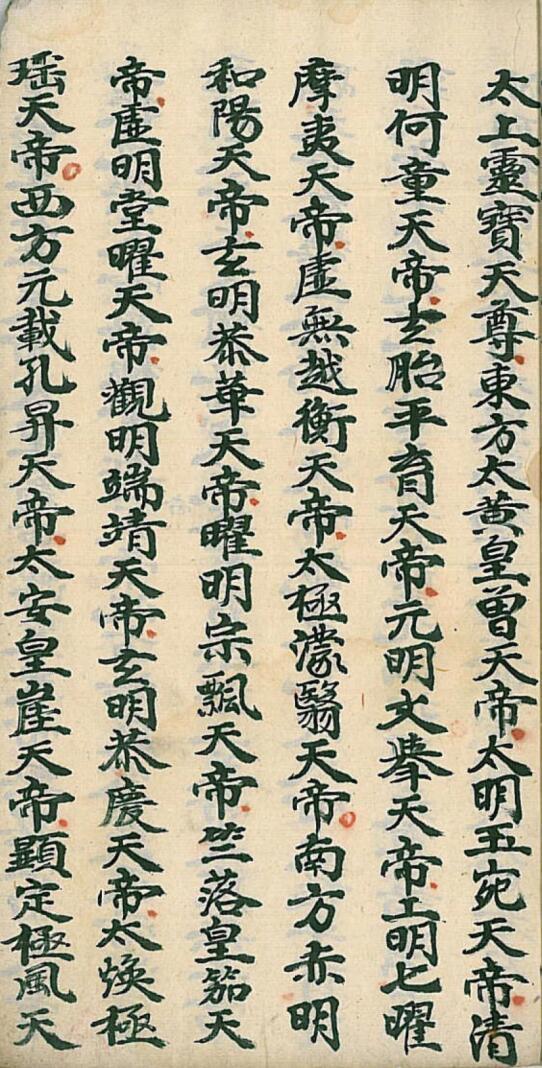 太上靈寶天尊東方太黃皇曾天帝太明玉宛天帝清
明何童天帝玄胎平育天帝元明文舉天帝上明七曜
摩夷天帝虛無越衡天帝太極濛翳天帝南方赤明
和陽天帝玄明恭華天帝曜明宗飄天帝竺落皇笳天
帝虛明堂曜天帝觀明端靖天帝玄明恭慶天帝太煥極
瑶天帝西方元載孔昇天帝太安皇崖天帝顯定極風天